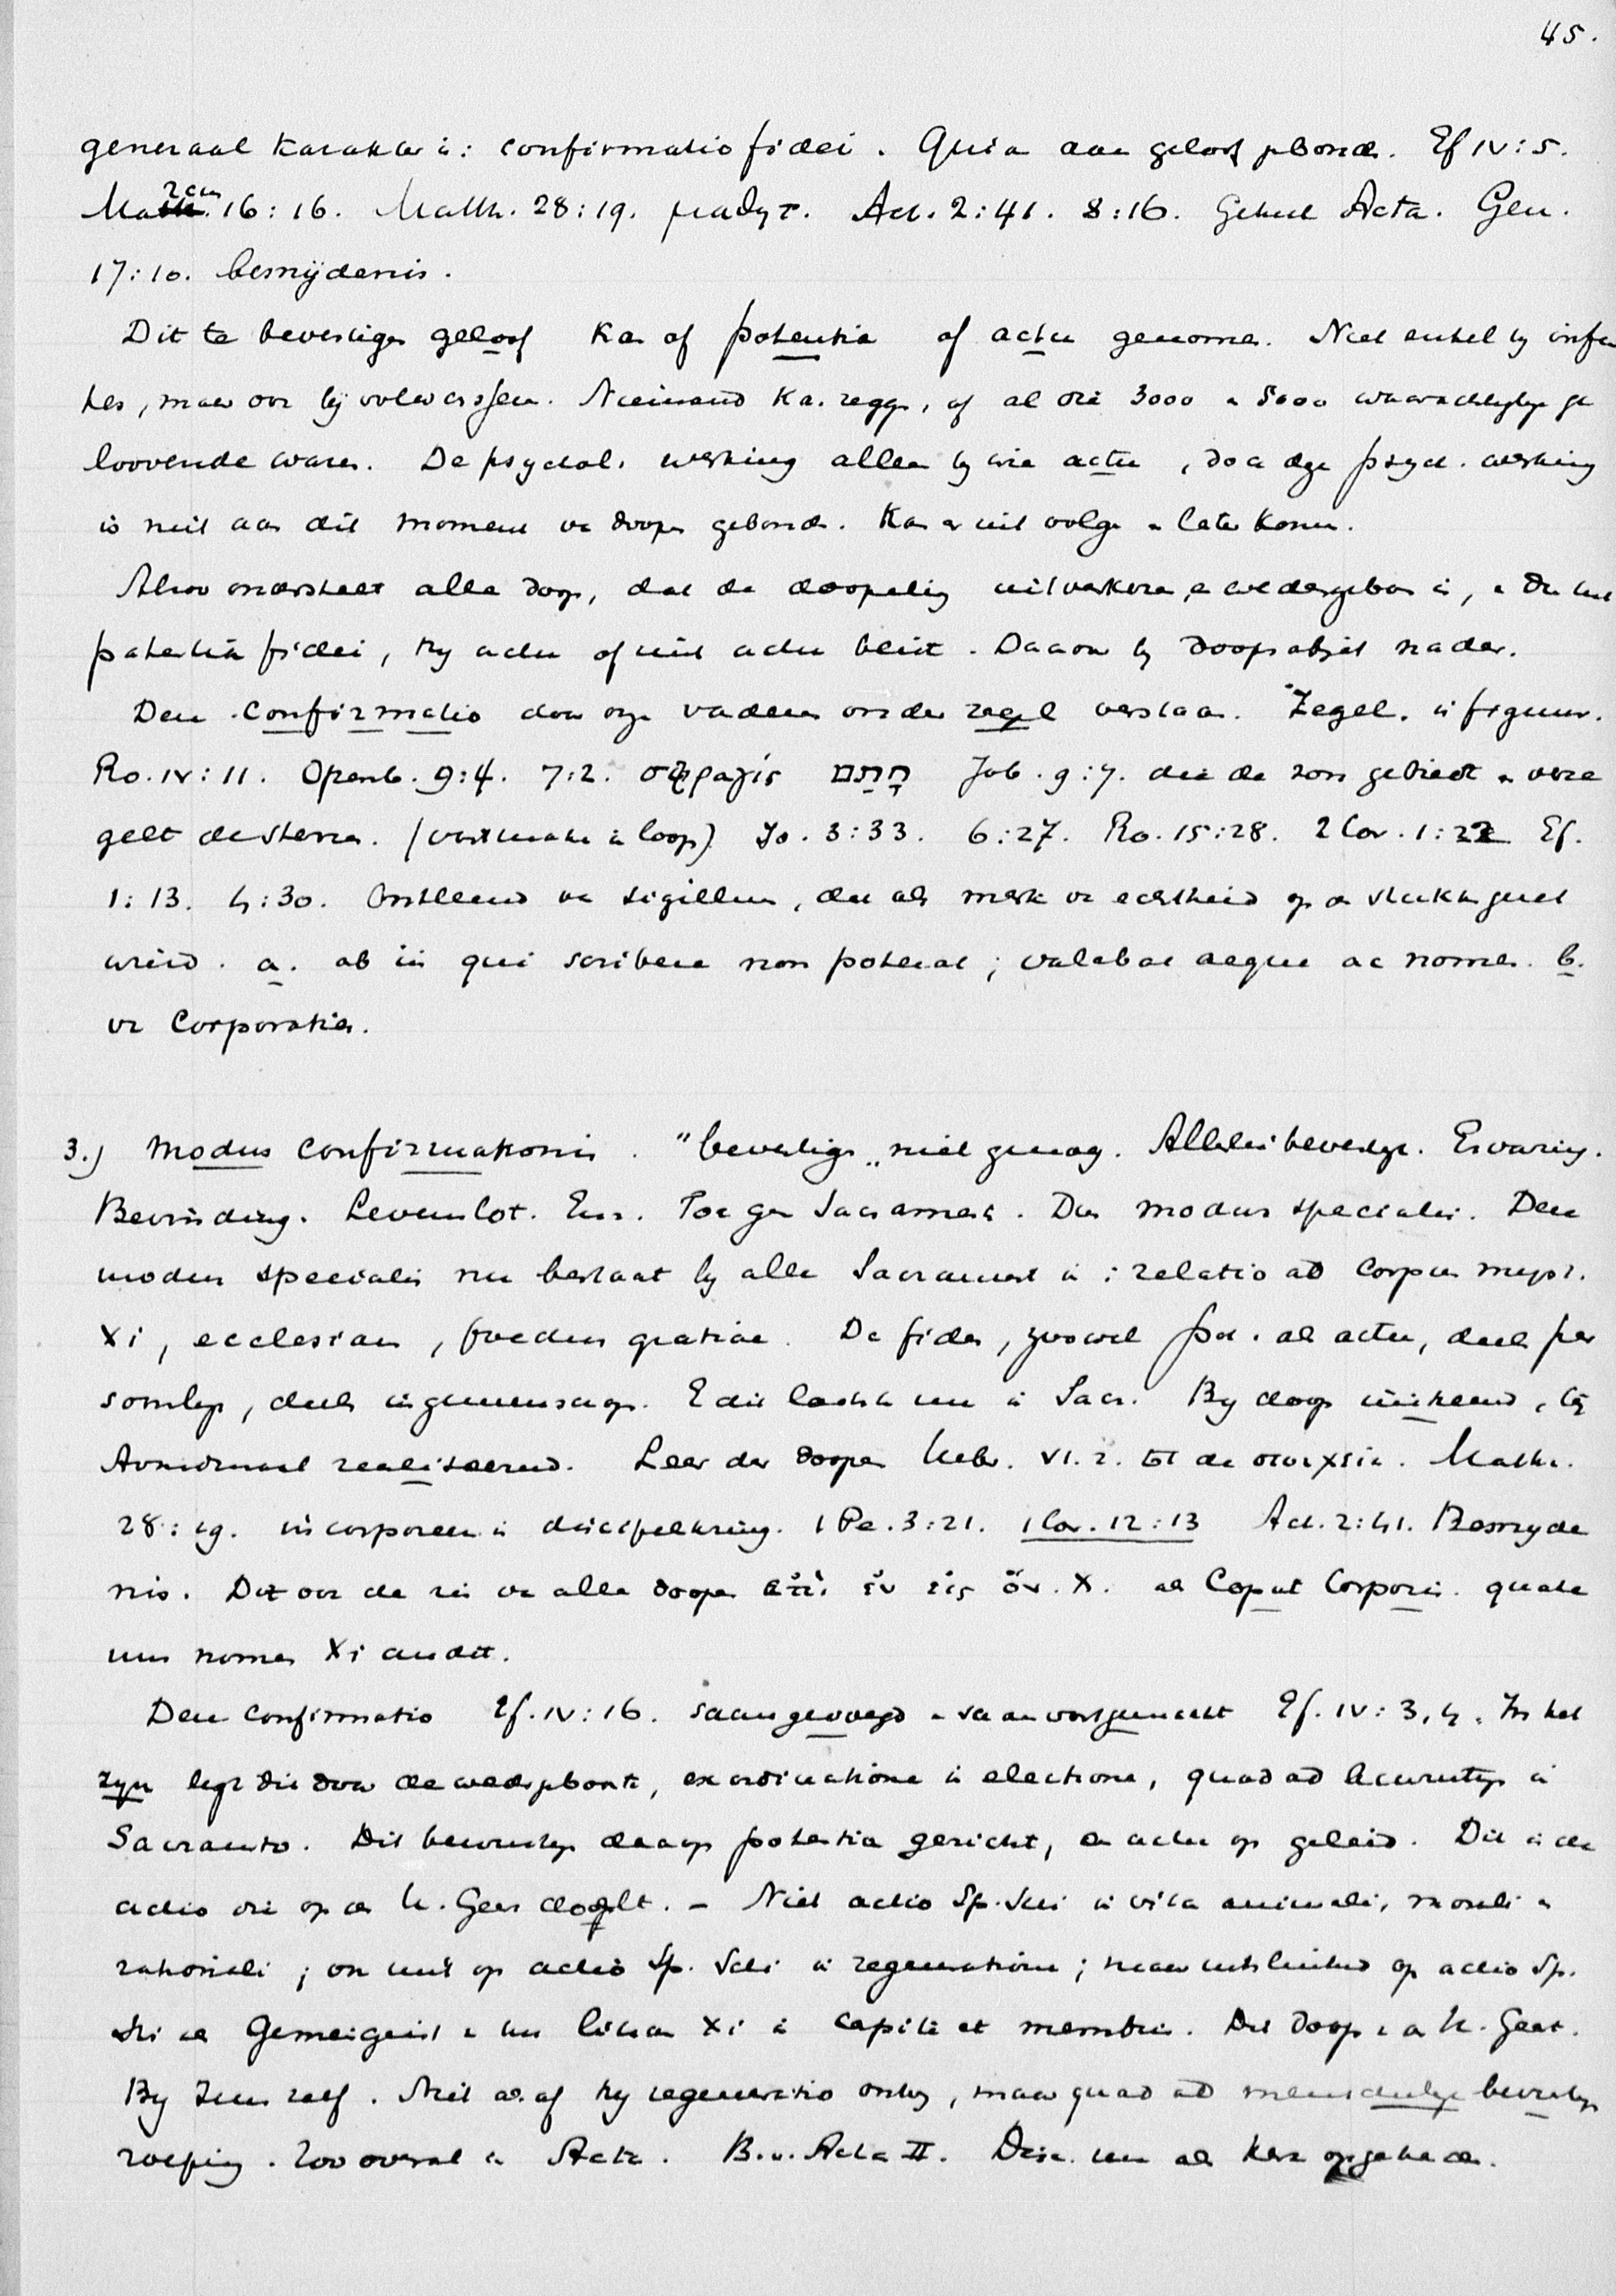 45.
generaal karakter is: confirmatio fidei. Quia aan geloof gebonde. Ef IV:5.
Marcus 16:16. Matth. 28:19. μαθητ. Act. 2:41. 8:16. Geheel Acta. Gen.
17:10. besnijdenis.
Dit te bevestige geloof ka of potentia of actu genome. Niet enkel by infan
tes, maar ook bij volwassen. Niemand ka. zegge, of al die 3000 e 5000 waarachtiglyk ge
loovende ware. De psychol. werking alleen by wie actu, doch deze psych. werking
is niet aan dit moment va doope gebonde. Kan er uit volge e later kome.
Alzoo onderstelt alle doop, dat de doopeling uitverkore e wedergebore is, e dus met
potentia fidei, hy actu of niet actu belijdt. Daarov by doopobject nader.
Deze confirmatio door onze vaderen onder zegel verstaan. Zegel. is figuur.
Ro. IV:11. Openb. 9:4. 7:2. σφραγίς חתם Job. 9:7. die de zon gebiedt e verze
gelt de sterre. (vastmake i loop) Jo. 3:33. 6:27. Ro. 15:28. 2 Cor. 1:22 Ef.
1:13. 4:30. Ontleend va sigillum, dat als merk va echtheid op de stukke gezet
wierd. a. ab iis qui scribere non poterat; valebat aeque ac nomen. b.
va Corporaties.
3.) Modus confirmationis. "bevestige" niet genoeg. Allerlei bevestigt. Ervaring.
Bevinding. Levenslot. Enz. Toe gee Sacrament. Dus modus specialis. Deze
modus specialis nu bestaat by alle Sacrament i: relatio ad corpus myst.
Xi, ecclesiam, foedus gratiae. De fides, zoowel pot. als actu, deels per
soonlyk, deels i gemeenschap. E dit laatste nu i Sacr. By doop initieerend, bij
Avondmaal realiseerend. Leer der doope Hebr. VI.2. tot de στοιχεῖα. Matth.
28:19. incorporeere i discipelkring. 1 Pe. 3:21. 1 Cor. 12:13 Act. 2:41. Besnyde
nis. Dit ook de zin va alle doope ἐπί ἐν εἰς ὄν. X. als Caput Corporis. quate
nus nomen Xi audit.
Deze confirmatio Ef. IV:16. saamgevoegd e saam vastgemaakt Ef. IV:3,4. In het
zyn legt die door de wedergeboorte, ex ordinatione i electione, quoad ad bewustzyn i
Sacramento. Dit bewustzyn daarop potentia gericht, e actu op geleid. Dit is de
actio die op de H. Geest doelt. – Niet actio Sp. Scti i vita animali, morali e
rationali; ook niet op actio Sp. Scti i regeneratione; maar uitsluitend op actio Sp.
Scti als Gemeengeest i het lichaam Xi i capite et membris. Dit doop i de H. Geest.
By Jezus zelf. Niet als of hy regeneratio ontving, maar quoad ad menschelyk bewustzyn
roeping. Zoo overal i Acta. B.v. Acta II. Disc. nu als kerk opgetrede.